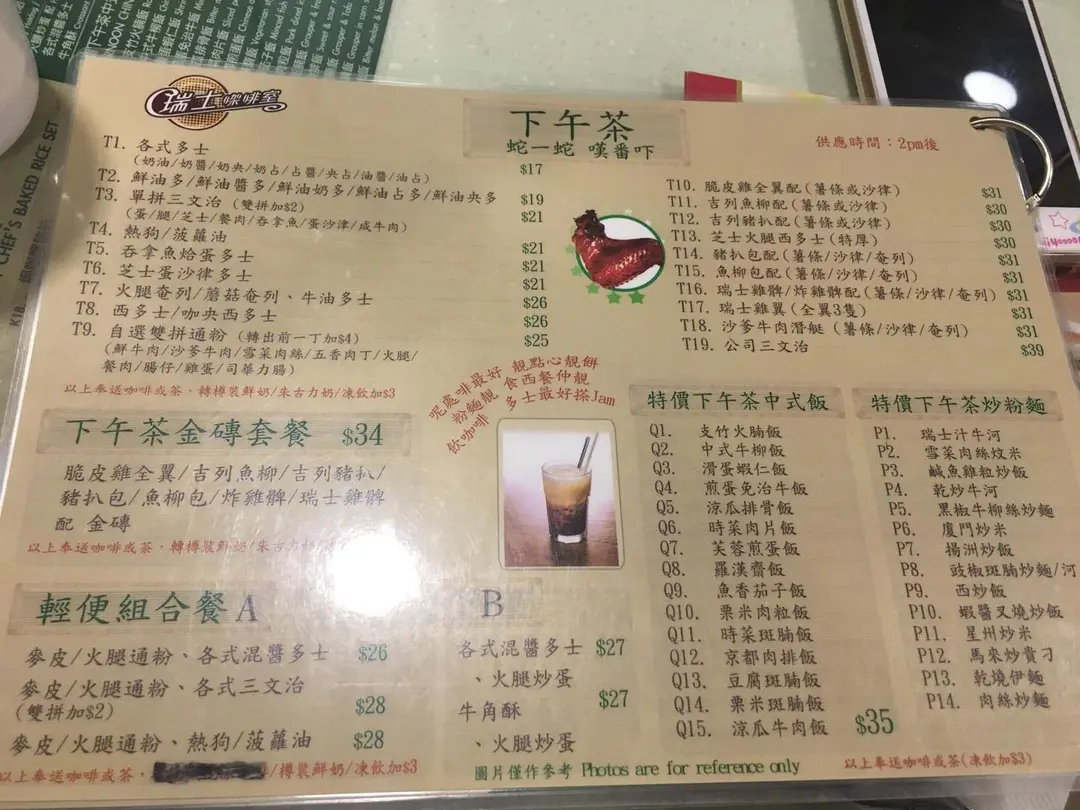 瑞士㗎啡室
下午茶
蛇一蛇 嘆番吓
供應時間：2pm後
T1. 各式多士
(奶油/奶醬/奶央/奶占/占醬/央占/油醬/油占) $17
T2. 鮮油多/鮮油醬多/鮮油奶多/鮮油占多/鮮油央多 $19
T3. 單拼三文治 (雙拼加$2) $21
(蛋/腿/芝士/餐肉/吞拿魚/蛋沙津/咸牛肉)
T4. 熱狗/菠蘿油 $21
T5. 吞拿魚烚蛋多士 $21
T6. 芝士蛋沙律多士 $21
T7. 火腿奄列/蘑菇奄列、牛油多士 $26
T8. 西多士/咖央西多士 $26
T9. 自選雙拼通粉 (轉出前一丁加$4) $25
(鮮牛肉/沙爹牛肉/雪菜肉絲/五香肉丁/火腿/
餐肉/腸仔/雞蛋/司華力腸)
以上奉送咖啡或茶，轉樽裝鮮奶/朱古力奶/凍飲加$3
T10. 脆皮雞全翼配(薯條或沙律) $31
T11. 吉列魚柳配(薯條或沙律) $30
T12. 吉列豬扒配(薯條或沙律) $30
T13. 芝士火腿西多士(特厚) $30
T14. 豬扒包配(薯條/沙律/奄列) $31
T15. 魚柳包配(薯條/沙律/奄列) $31
T16. 瑞士雞髀/炸雞髀配(薯條/沙律/奄列) $31
T17. 瑞士雞翼(全翼3隻) $31
T18. 沙爹牛肉潛艇 (薯條/沙律/奄列) $31
T19. 公司三文治 $39
呢處啡最好 靚點心靚餅
粉麵靚 食西餐仲靚
飲咖啡 多士最好搽Jam
下午茶金磚套餐 $34
脆皮雞全翼/吉列魚柳/吉列豬扒/
豬扒包/魚柳包/炸雞髀/瑞士雞髀
配 金磚
以上奉送咖啡或茶，轉樽裝鮮奶/朱古力奶
輕便組合餐A
麥皮/火腿通粉、各式混醬多士 $26
麥皮/火腿通粉、各式三文治 $28
(雙拼加$2)
麥皮/火腿通粉、熱狗/菠蘿油 $28
以上奉送咖啡或茶，/樽裝鮮奶/凍飲加$3
B
各式混醬多士 $27
、火腿炒蛋
牛角酥 $27
、火腿炒蛋
圖片僅作參考 Photos are for reference only
特價下午茶中式飯
Q1. 支竹火腩飯
Q2. 中式牛柳飯
Q3. 滑蛋蝦仁飯
Q4. 煎蛋免治牛飯
Q5. 涼瓜排骨飯
Q6. 時菜肉片飯
Q7. 芙蓉煎蛋飯
Q8. 羅漢齋飯
Q9. 魚香茄子飯
Q10. 粟米肉粒飯
Q11. 時菜斑腩飯
Q12. 京都肉排飯
Q13. 豆腐斑腩飯
Q14. 粟米斑腩飯
Q15. 涼瓜牛肉飯
$35
特價下午茶炒粉麵
P1. 瑞士汁牛河
P2. 雪菜肉絲炆米
P3. 鹹魚雞粒炒飯
P4. 乾炒牛河
P5. 黑椒牛柳絲炒麵
P6. 廈門炒米
P7. 揚洲炒飯
P8. 豉椒斑腩炒麵/河
P9. 西炒飯
P10. 蝦醬叉燒炒飯
P11. 星州炒米
P12. 馬來炒貴刁
P13. 乾燒伊麵
P14. 肉絲炒麵
以上奉送咖啡或茶(凍飲加$3)
CHEF'S BAKED RICE SET